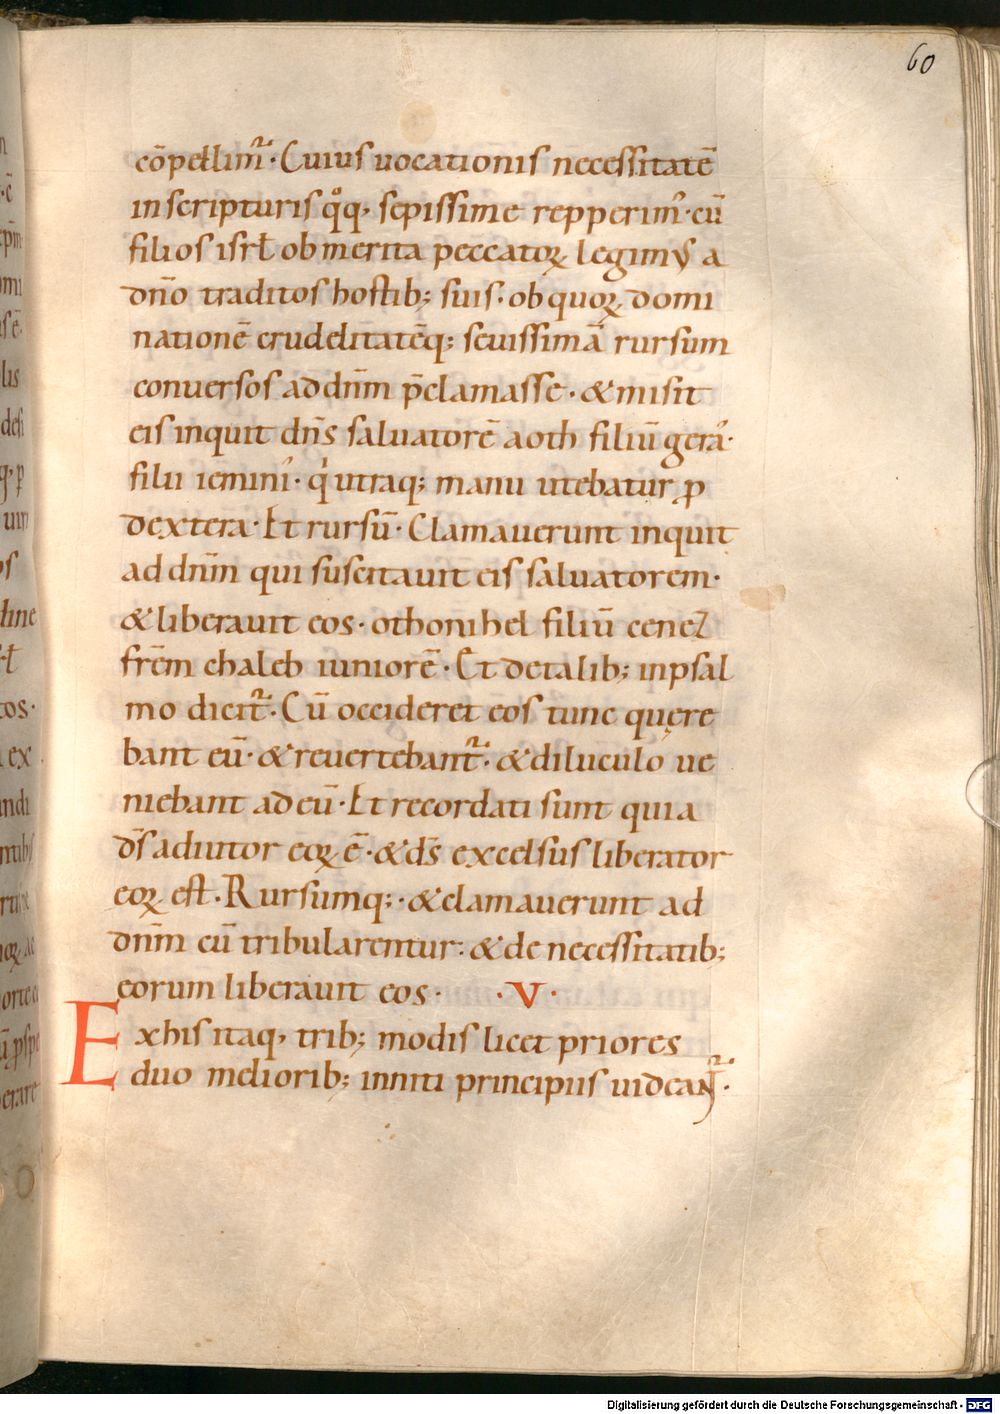 60
cōpellim᷑· Cuius uocationis necessitatē
in scripturis qͦq, sepissime repperim᾽· cū
filios isrł ob merita peccatoꝝ legimus a
dn̄o traditos hostib; suis· ob quoꝝ domi
nationē crudelitatēq; seuissimā rursum
conuersos ad dn̄m p̄clamasse· & misit
eis inquit dn̄s saluatorē aoth filiū gera᾽·
filii iemini᾽· qi utraq; manu utebatur ꝓ
dextera· Et rursū· Clamauerunt inquit
ad dn̄m qui suscitauit eis saluatorem·
& liberauit eos· othonihel filiū cenez
frēm chaleb iuniorē· Et de talib; in psal
mo dicit᷑· Cū occideret eos tunc quęre
bant eū· & reuertebant᷑· & diluculo ue
niebant ad eū· Et recordati sunt quia
d̄s adiutor eoꝝ ē· & d̄s excelsus liberator
eoꝝ est· Rursumq;· & clamauerunt ad
dn̄m cū tribularentur: & de necessitatib;
eorum liberauit eos· ·V·
Ex his itaq, trib; modis licet priores
duo meliorib; inniti principiis uideant᷑·
Digitalisierung gefördert durch die Deutsche Forschungsgemeinschaft - DFG